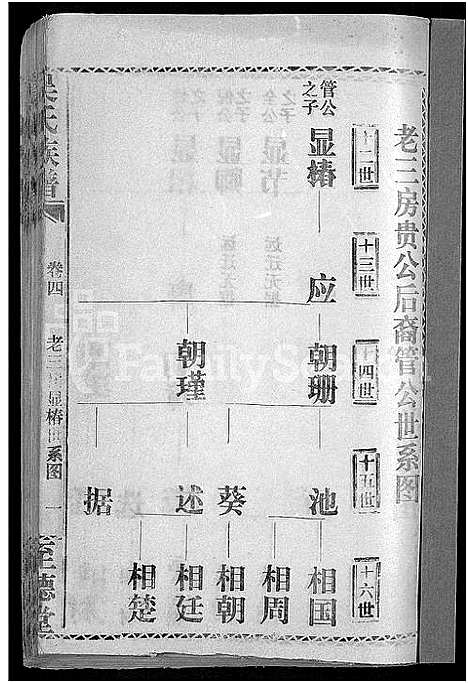 老三房贵公后裔管公世系图
十二世
十三世
十四世
十五世
十六世
管公之子
显椿
应
朝珊
朝瑾
池
葵
述
据
相国
相周
相朝
相廷
相楚
吴氏族谱
卷四
老三房显椿世系图
一
至德堂
FamilySearch